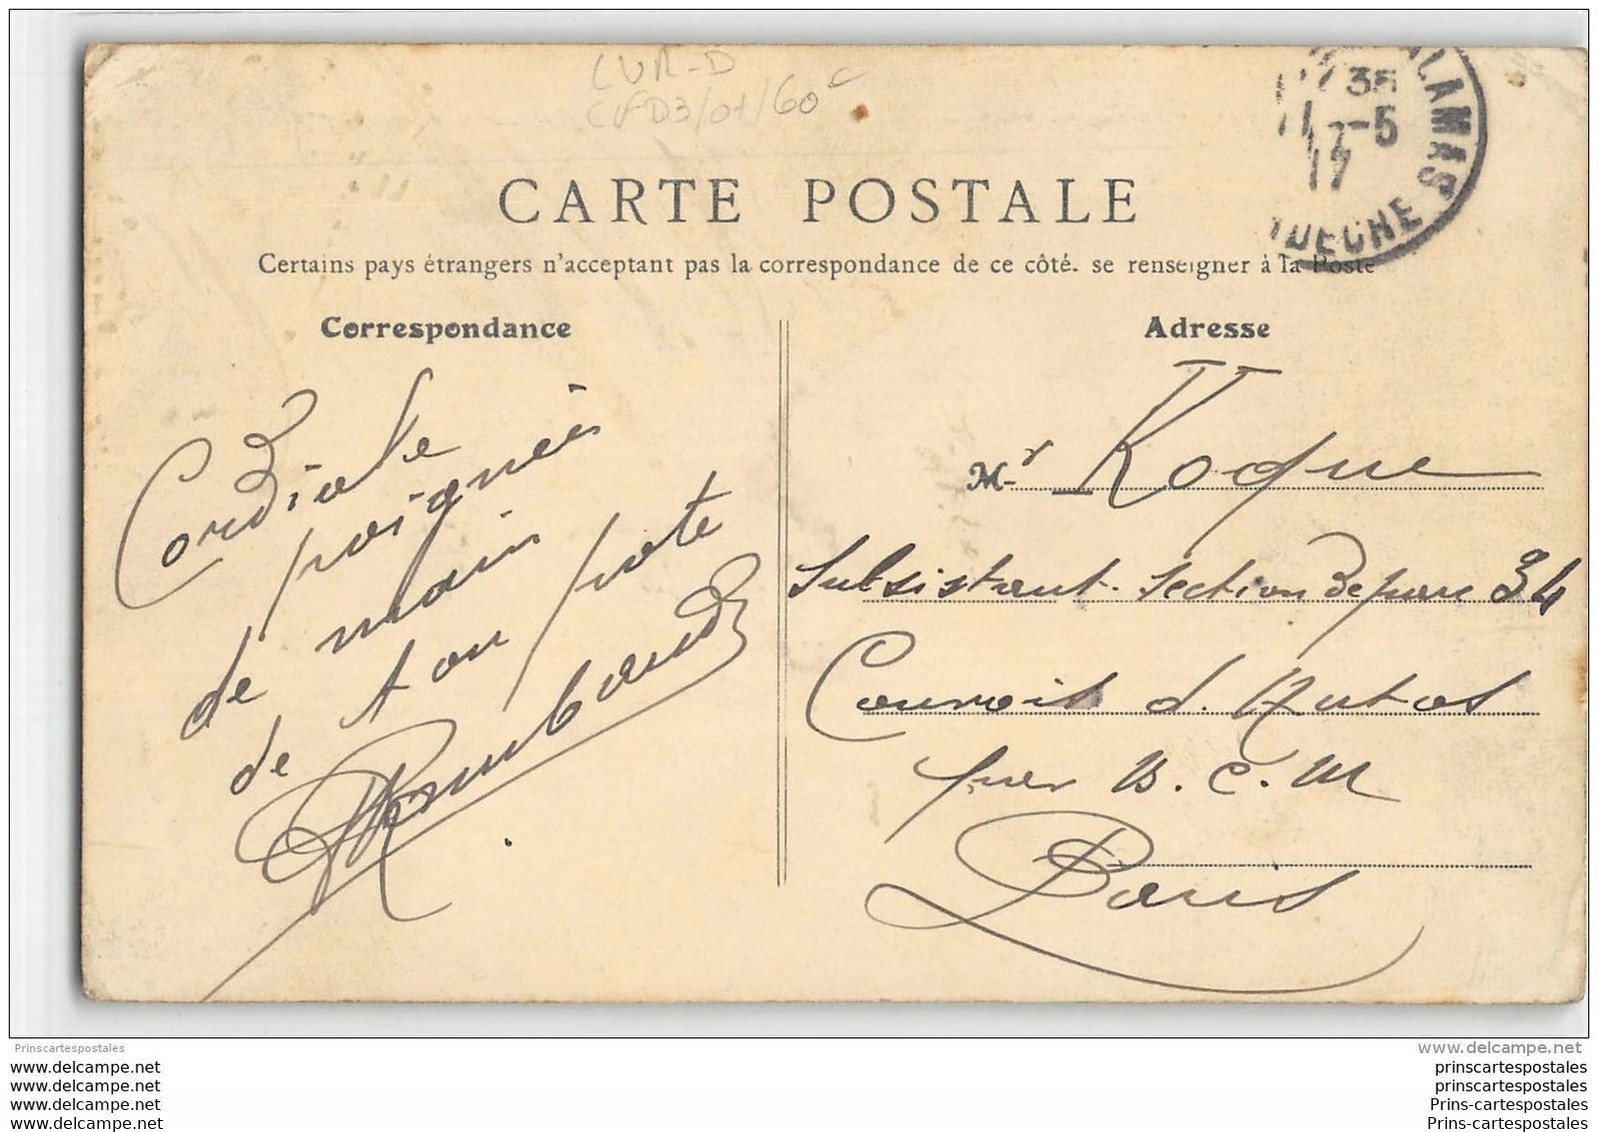 CUR-D
CFD3/07/60c
35
11-5
17
LAMAS
DECHE
CARTE POSTALE
Certains pays étrangers n'acceptant pas la correspondance de ce côté. se renseigner à la Poste
Correspondance
Cordiale
poignées
de main
de ton pote
Rambaud
Adresse
Mr Roque
Subsistant - Section de parc 34
Convois d. Autos
par B. C. M
Paris
Prinscartespostales
www.delcampe.net
www.delcampe.net
www.delcampe.net
www.delcampe.net
www.delcampe.net
prinscartespostales
prinscartespostales
Prins-cartespostales
Prins-cartespostales